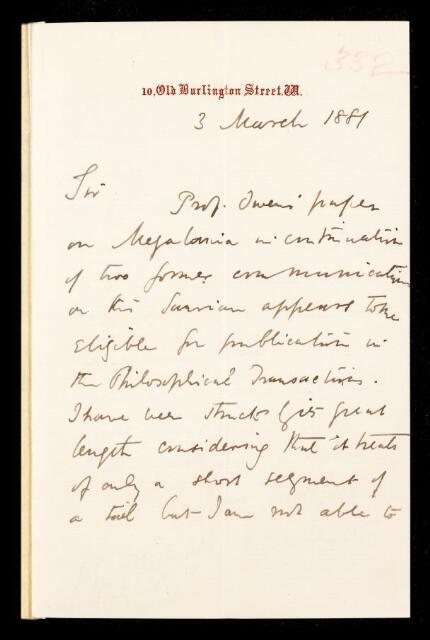 332
10, Old Burlington Street. W.
3 March 1881
Sir
Prof. Owens' paper
on Megalania in continuation
of two former communications
on this Saurian appears to me
eligible for publication in
the Philosophical Transactions.
I have been struck by its great
length considering that it treats
of only a short segment of
a tail but I am not able to